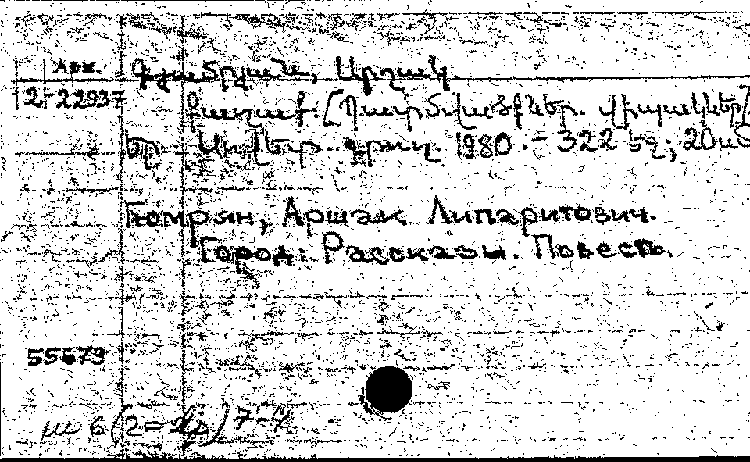 Арм.
2-22937
Գյումրյան, Արշակ
Քաղաք: [Պատմվածքներ. վիպակներ]
Եր. Սովետ. գրող. 1980.- 322 էջ;
Гюмрян, Аршак Липаритович.
Город: Рассказы. Повесть.
55679